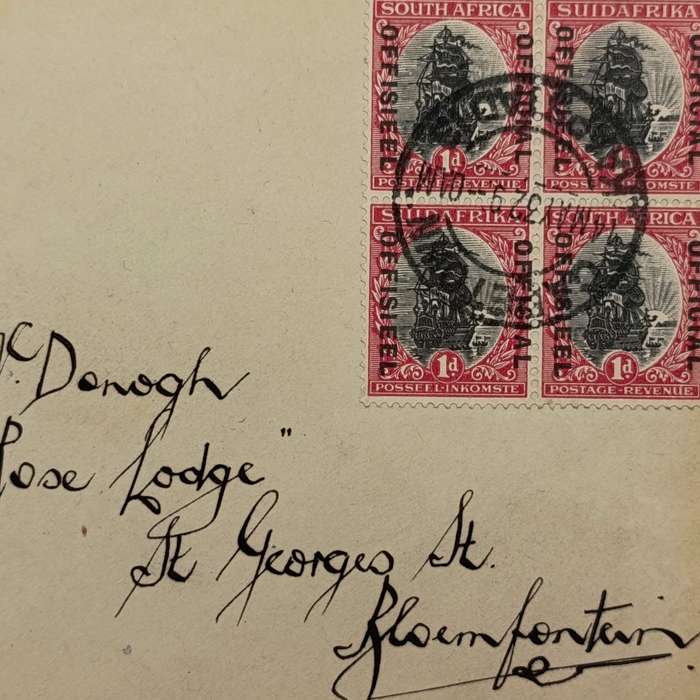 SOUTH AFRICA
OFFISIEEL
OFFICIAL
1d
POSTAGE-REVENUE
SUIDAFRIKA
OFFISIEEL
OFFICIAL
1d
POSSEEL-INKOMSTE
SUIDAFRIKA
OFFISIEEL
OFFICIAL
1d
POSSEEL-INKOMSTE
SOUTH AFRICA
OFFISIEEL
OFFICIAL
1d
POSTAGE-REVENUE
Mc. Donogh
Rose Lodge"
St Georges St.
Bloemfontein